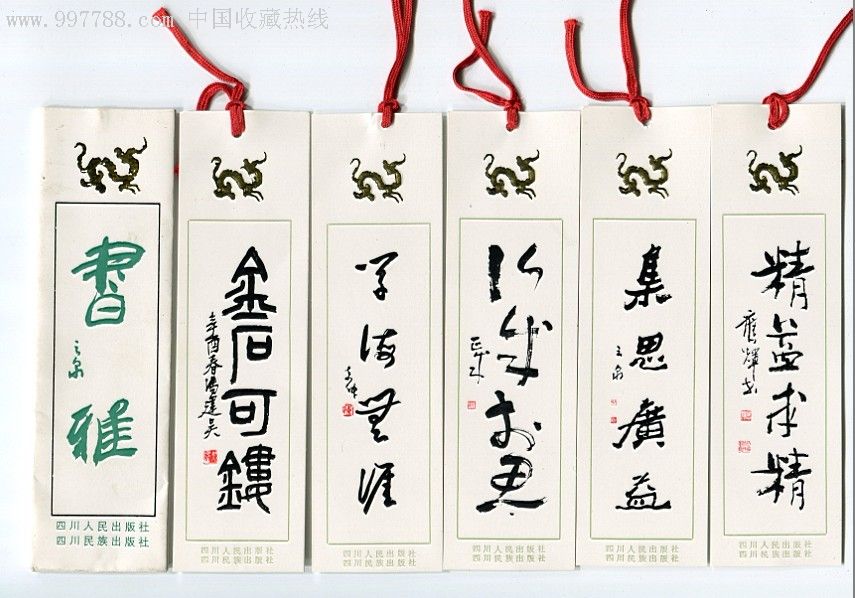 www.997788.com 中国收藏热线
書雅
四川人民出版社
四川民族出版社
金石可鏤
辛酉春冯建吴
四川人民出版社
四川民族出版社
学海無涯
四川人民出版社
四川民族出版社
行成於思
四川人民出版社
四川民族出版社
集思廣益
四川人民出版社
四川民族出版社
精益求精
四川人民出版社
四川民族出版社